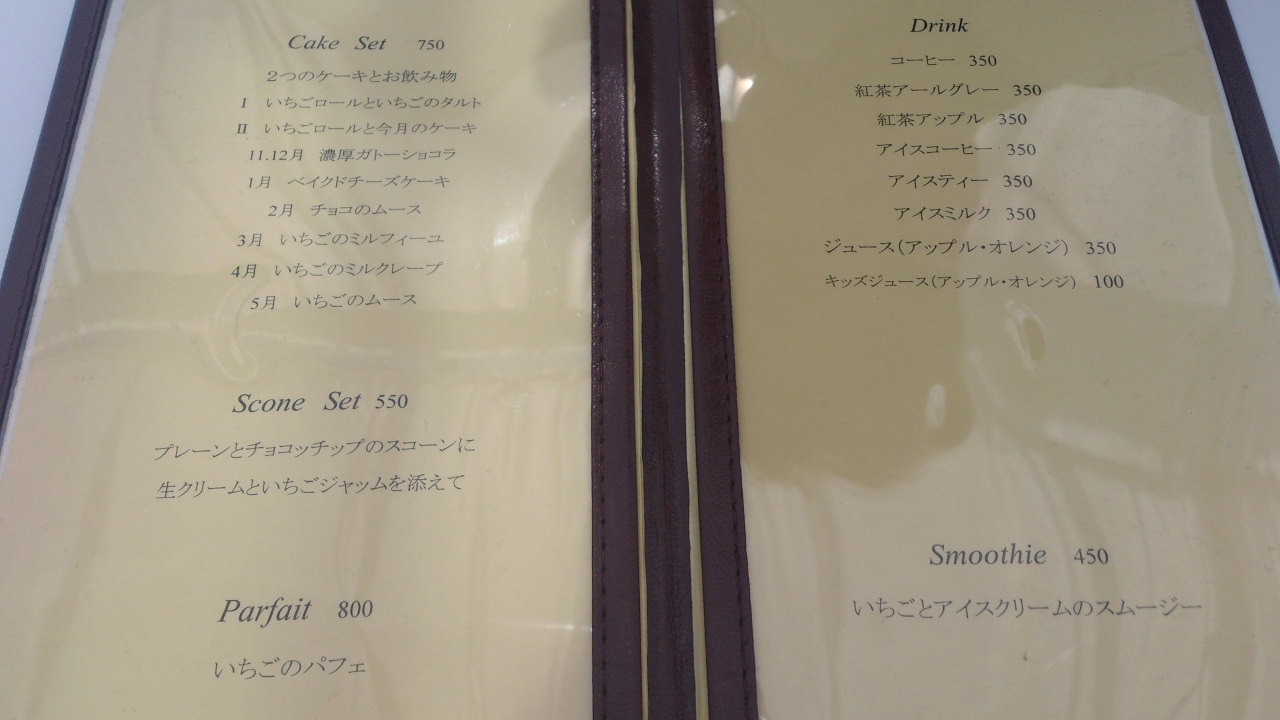 Cake Set 750
２つのケーキとお飲み物
Ⅰ いちごロールといちごのタルト
Ⅱ いちごロールと今月のケーキ
11.12月 濃厚ガトーショコラ
1月 ベイクドチーズケーキ
2月 チョコのムース
3月 いちごのミルフィーユ
4月 いちごのミルクレープ
5月 いちごのムース
Scone Set 550
プレーンとチョコッチップのスコーンに
生クリームといちごジャッムを添えて
Parfait 800
いちごのパフェ
Drink
コーヒー 350
紅茶アールグレー 350
紅茶アップル 350
アイスコーヒー 350
アイスティー 350
アイスミルク 350
ジュース（アップル・オレンジ） 350
キッズジュース（アップル・オレンジ） 100
Smoothie 450
いちごとアイスクリームのスムージー